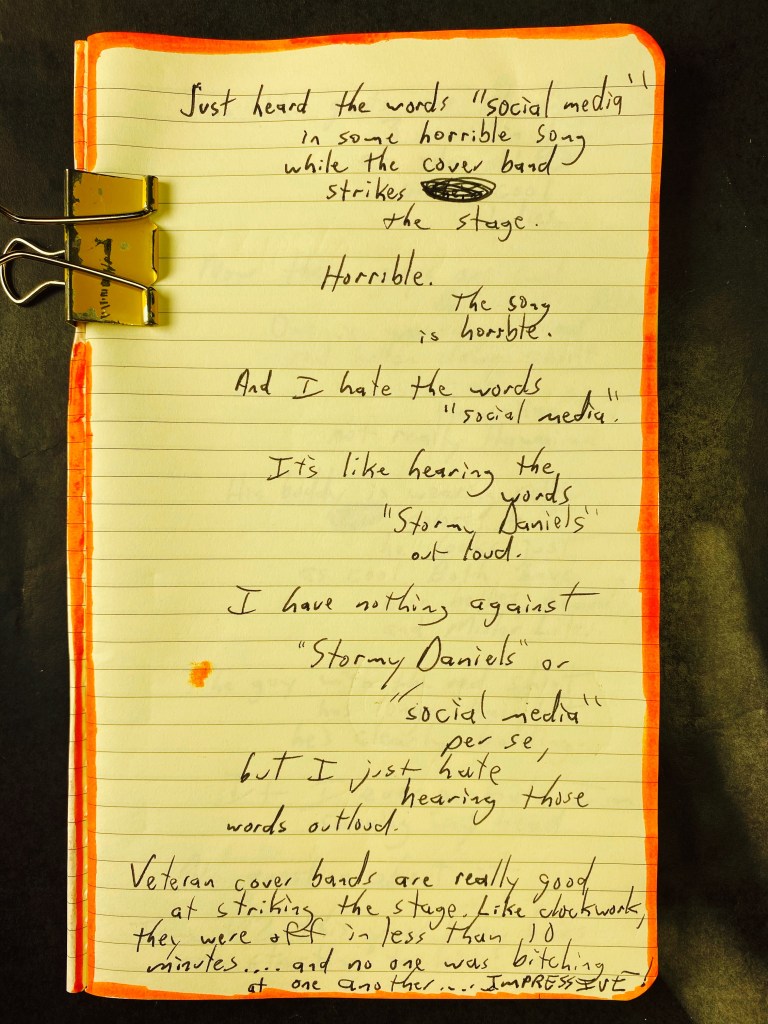 Just heard the words "social media"
in some horrible song
while the cover band
strikes
the stage.
Horrible.
The song
is horrible.
And I hate the words
"social media".
It's like hearing the
words
"Stormy Daniels"
out loud.
I have nothing against
"Stormy Daniels" or
"social media"
per se,
but I just hate
hearing those
words outloud.
Veteran cover bands are really good
at striking the stage. Like clockwork,
they were off in less than 10
minutes.... and no one was bitching
at one another.... IMPRESSIVE!